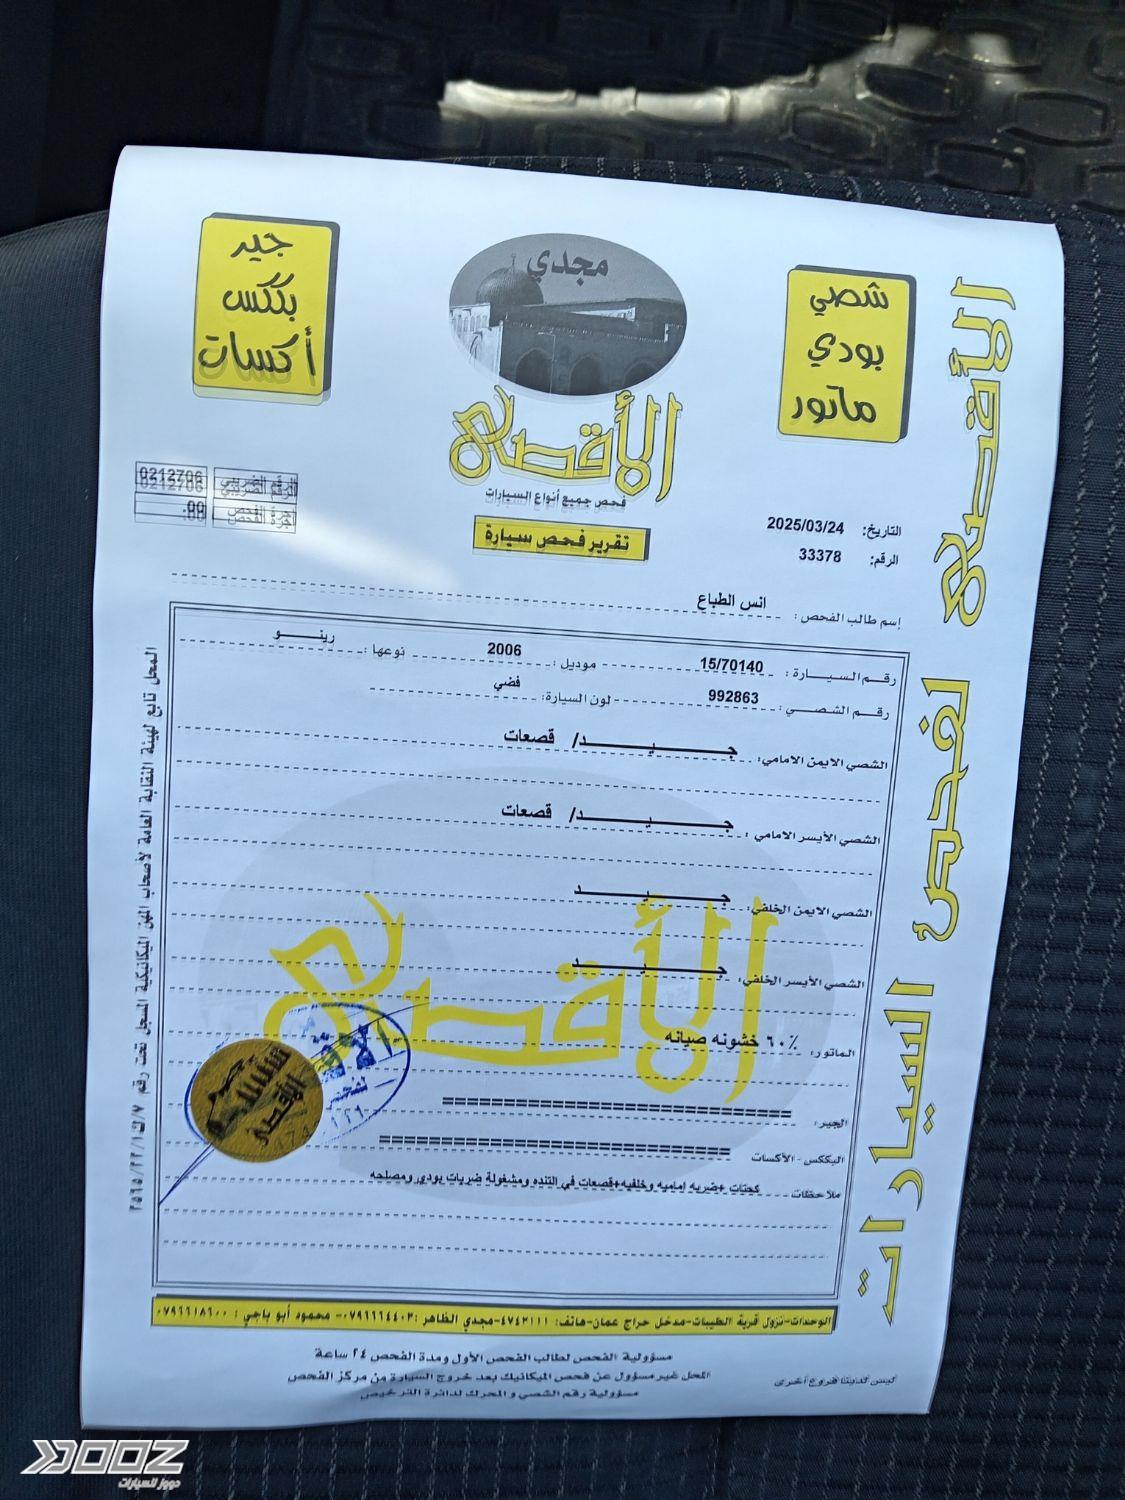 جير
بككس
أكسات
مجدي
الأقصى
فحص جميع أنواع السيارات
تقرير فحص سيارة
شصي
بودي
ماتور
الأقصى لفحص السيارات
الرقم الضريبي 0212706
أجرة الفحص .00
التاريخ: 2025/03/24
الرقم: 33378
إسم طالب الفحص: انس الطباع
رقم السيارة: 15/70140 موديل: 2006 نوعها: رينو
رقم الشصي: 992863 لون السيارة: فضي
الشصي الايمن الامامي: جيد/ قصعات
الشصي الأيسر الامامي: جيد/ قصعات
الشصي الايمن الخلفي: جيد
الشصي الأيسر الخلفي: جيد
الماتور: ٦٠٪ خشونه صيانه
الجير: ================================
البككس - الأكسات ================================
ملاحظات كحتات +ضربه اماميه وخلفيه+قصعات في التنده ومشغولة ضربات بودي ومصلحه
الأقصى
المحل تابع لهيئة النقابة العامة لأصحاب المهن الميكانيكية المسجل تحت رقم
الوحدات-نزول قرية الطيبات-مدخل حراج عمان-هاتف: ٤٧٤٣١١١-مجدي الظاهر: ٠٧٩٦٦٦٤٤٠٣- محمود أبو باجي: ٠٧٩٦٦١٨٦٠٠
مسؤولية الفحص لطالب الفحص الأول ومدة الفحص ٢٤ ساعة
المحل غير مسؤول عن فحص الميكانيك بعد خروج السيارة من مركز الفحص
مسؤولية رقم الشصي و المحرك لدائرة الترخيص
ليس لدينا فروع أخرى
DOOZ
دووز للسيارات